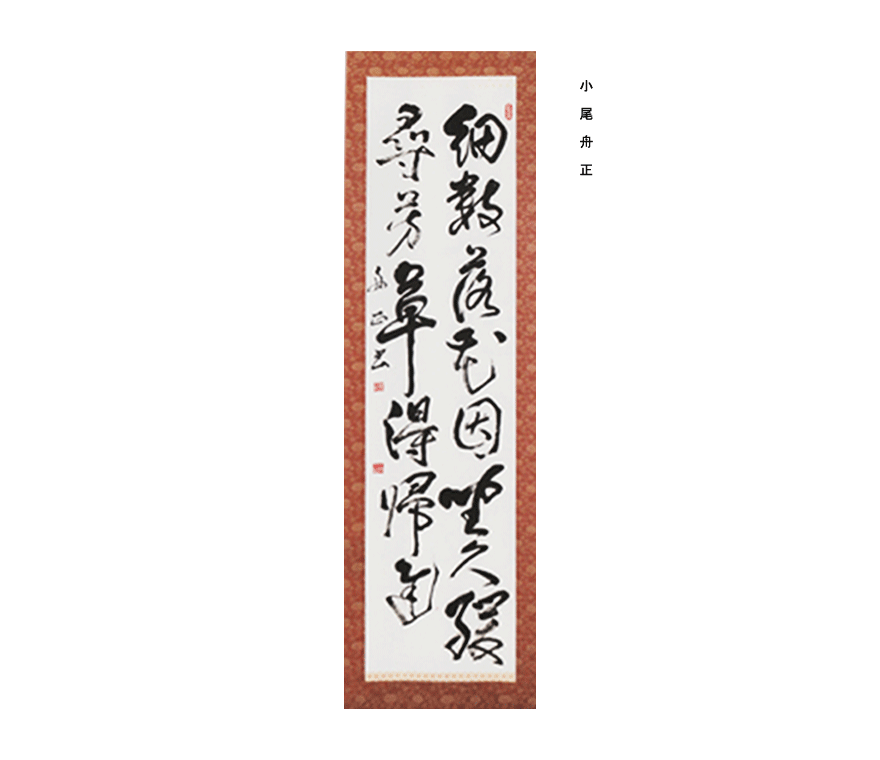 小尾舟正
細數落花因坐久緩
尋芳草得帰遅
舟正書